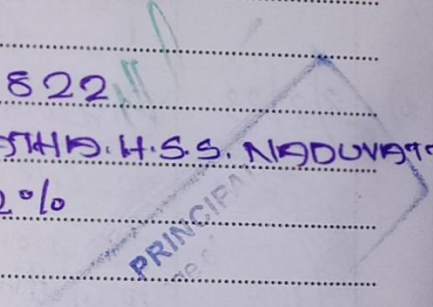 822
H.S.S. NADUVATT
2%
PRINCIPA
ge of